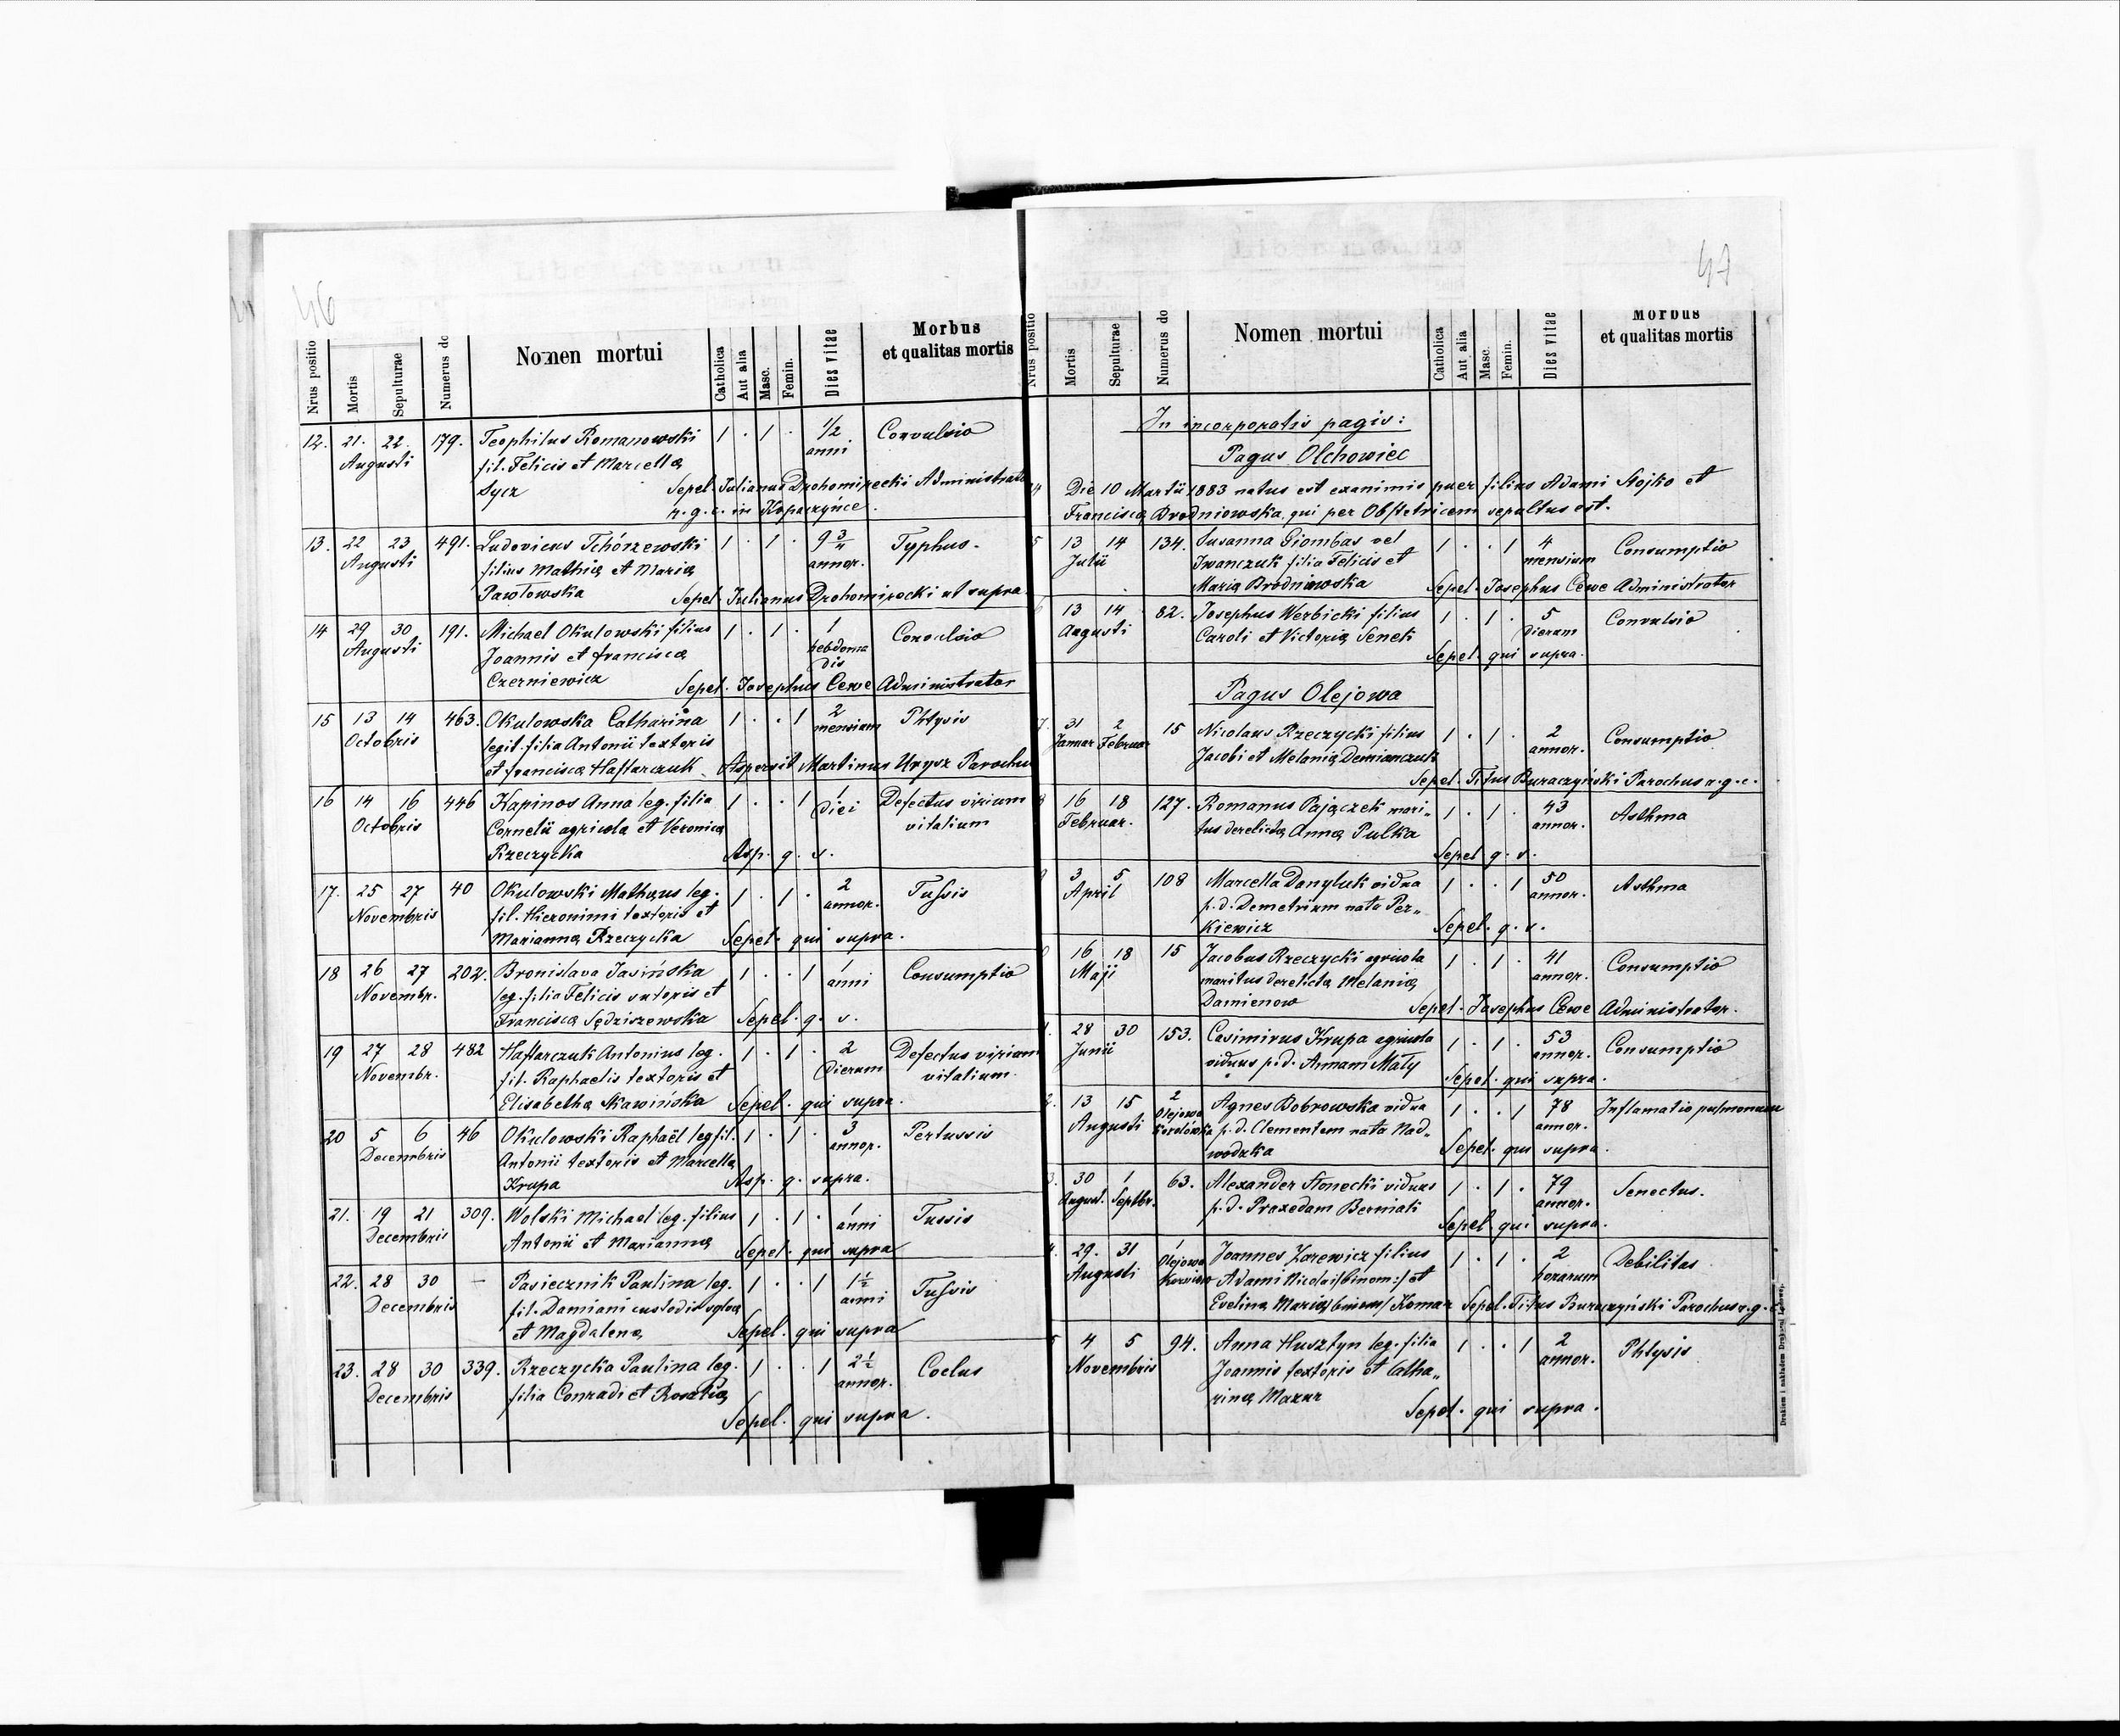 46
Nrus positio Mortis Sepulturae Numerus do Nomen mortui Catholica Aut alia Masc. Femin. Dies vitae Morbus et qualitas mortis
12. 21. 22. 179. Teophilus Romanowski 1 . 1 . 1/2 Convulsio
Augusti fil. Felicis et Marcellæ anni
Sycz Sepel. Julianus Drohomirecki Administrator
r. g. c. in Kopaczyńce.
13. 22 23 491. Ludovicus Tchórzewski 1 . 1 . 9 3/4 Typhus.
Augusti filius Mathiæ et Mariæ annor.
Pawłowska Sepel. Julianus Drohomirecki ut supra
14 29 30 191. Michael Okulowski filius 1 . 1 . 1 Convulsio
Augusti Joannis et Franciscæ hebdoma
dis
Czerniewicz Sepel. Josephus Cewe Administrator
15 13 14 463. Okulowska Catharina 1 . . 1 2 Phtysis
Octobris legit. filia Antonii textoris mensium
et Franciscæ Haftarczuk Aspersit Martinus Urysz Parochus
16 14 16 446 Kapinos Anna leg. filia 1 . . 1 1 Defectus virium
Octobris Cornelii agricola et Veronicæ diei vitalium
Rzeczycka Asp. q. s.
17. 25 27 40 Okulowski Mathæus leg. 1 . 1 . 2 Tussis
Novembris fil. Hieronimi textoris et annor.
Mariannæ Rzeczycka Sepel. qui supra.
18 26 27 202. Bronislava Jasińska 1 . . 1 1 Consumptio
Novembr. leg. filia Felicis sutoris et anni
Franciscæ Sędziszewska Sepel. q. s.
19 27 28 482 Haftarczuk Antonius leg. 1 . 1 . 2 Defectus virium
Novembr. fil. Raphaelis textoris et dierum vitalium.
Elisabetha Skawińska Sepel. qui supra.
20 5 6 46 Okulowski Raphaël leg fil. 1 . 1 . 3 Pertussis
Decembris Antonii textoris et Marcellæ annor.
Krupa Asp. q. supra.
21. 19 21 309. Wolski Michael leg. filius 1 . 1 . 1 Tussis
Decembris Antonii et Mariannæ anni
Sepel. qui supra
22. 28 30 — Pasiecznik Paulina leg. 1 . . 1 1 1/2 Tussis
Decembris fil. Damiani custodis sylvæ anni
et Magdalenæ Sepel. qui supra
23. 28 30 339. Rzeczycka Paulina leg. 1 . . 1 2 1/2
Decembris filia Conradi et Rosaliæ annor.
Sepel. qui supra.
47
Nrus positio Mortis Sepulturae Numerus do Nomen mortui Catholica Aut alia Masc. Femin. Dies vitae Morbus et qualitas mortis
In incorporatis pagis:
Pagus Olchowiec
Die 10 Martii 1883 natus est exanimis puer filius Adami Stojko et
Franciscæ Brodniowska qui per Obstetricem sepultus est.
5 13 14 134. Susanna Giombas vel 1 . . 1 4 Consumptio
Julii Iwanczuk filia Felicis et mensium
Mariæ Brodniowska Sepel. Josephus Cewe Administrator
6 13 14 82. Josephus Werbicki filius 1 . 1 . 5 Convulsio
Augusti Caroli et Victoriæ Senek dierum
Sepel. qui supra.
Pagus Olejowa
7. 31 2 15 Nicolaus Rzeczycki filius 1 . 1 . 2 Consumptio
Januar Februar Jacobi et Melaniæ Demianczuk annor.
Sepel. Titus Buraczyński Parochus r. g. c.
8 16 18 127. Romanus Pajączek mari- 1 . 1 . 43 Asthma
Februar. tus derelictæ Annæ Pulka annor.
Sepel q. s.
3 5 108 Marcella Danyluk vidua 1 . . 1 50 Asthma
April p. d. Demetrium nata Per-
annor.
kiewicz Sepel. q. s.
0 16 18 15 Jacobus Rzeczycki agricola 1 . 1 . 41 Consumptio
Maji maritus derelictæ Melaniæ annor.
Damienow Sepel. Josephus Cewe Administrator.
1. 28 30 153. Casimirus Krupa agricola 1 . 1 . 53 Consumptio
Junii viduus p. d. Annam Mały annor.
Sepel. qui supra.
2. 13 15 2 Agnes Bobrowska vidua 1 . . 1 78 Inflamatio pulmonum
Augusti Olejowa Korolówka p. d. Clementem nata Nad- annor.
wodzka Sepel. qui supra.
3. 30 1 63. Alexander Słonecki viduus 1 . 1 . 79 Senectus.
August. Septbr. p. d. Praxedam Berniati annor.
Sepel. qui supra.
4. 29. 31 1 Joannes Zarewicz filius 1 . 1 . 2 Debilitas
Augusti Olejowa Adami Nicolai /:binom:/ et horarum
Evelinæ Mariæ /binom/ Komar Sepel. Titus Buraczyński Parochus r. g. c.
5 4 5 94. Anna Husztyn leg. filia 1 . . 1 2 Phtysis
Novembris Joannis textoris et Catha- annor.
rinæ Mazur Sepel. qui supra.